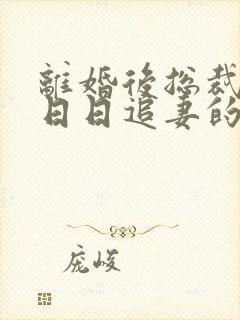 離婚後總裁
日日追妻的
庞峻